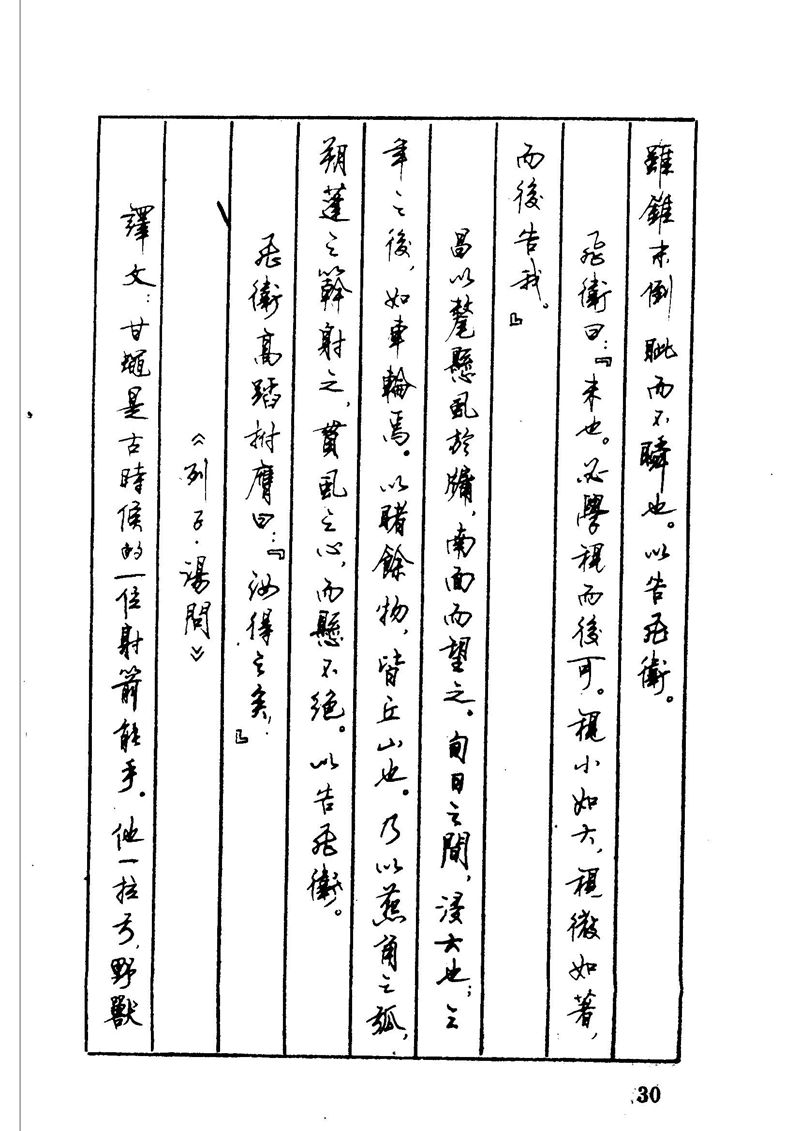 雖錐末倒眦而不瞬也。以告飛衛。
飛衛曰：『未也。必學視而後可。視小如大，視微如著，
而後告我。』
昌以氂懸虱於牖，南面而望之。旬日之間，浸大也；三
年之後，如車輪焉。以睹餘物，皆丘山也。乃以燕角之弧，
朔蓬之簳射之，貫虱之心，而懸不絕。以告飛衛。
飛衛高蹈拊膺曰：『汝得之矣！』
《列子·湯問》
譯文：甘蠅是古時候的一位射箭能手。他一拉弓，野獸
30